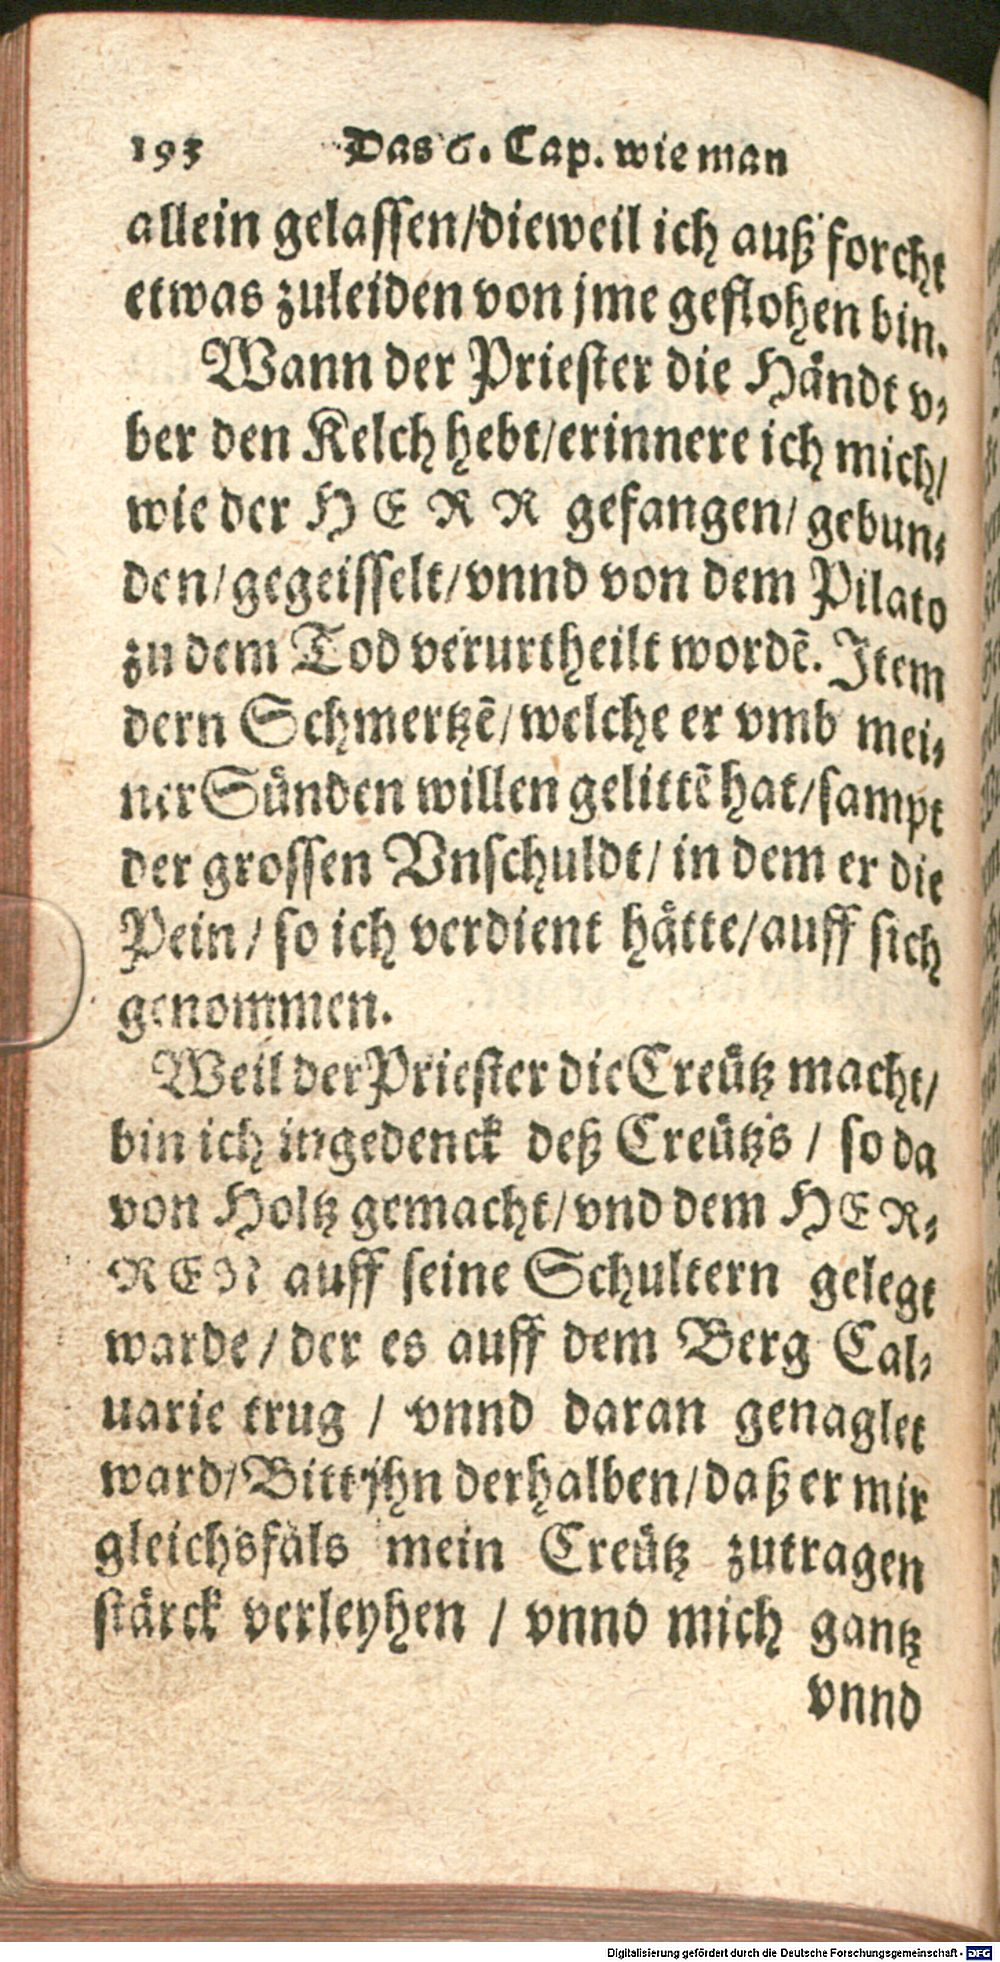 193 Das 6. Cap. wie man
allein gelassen/dieweil ich auß forcht
etwas zuleiden von jme geflohen bin.
Wann der Priester die Händt v⸗
ber den Kelch hebt/erinnere ich mich/
wie der HERR gefangen/gebun⸗
den/gegeisselt/vnnd von dem Pilato
zu dem Tod verurtheilt wordẽ. Item
dern Schmertzẽ/welche er vmb mei⸗
ner Sünden willen gelittẽ hat/sampt
der grossen Vnschuldt/in dem er die
Pein/so ich verdient hätte/auff sich
genommen.
Weil der Priester die Creütz macht/
bin ich ingedenck deß Creützs/so da
von Holtz gemacht/vnd dem HER⸗
REN auff seine Schultern gelegt
warde/der es auff dem Berg Cal⸗
uarie trug/vnnd daran genaglet
ward/Bitt jhn derhalben/daß er mir
gleichsfäls mein Creütz zutragen
stärck verleyhen/vnnd mich gantz
vnnd
Digitalisierung gefördert durch die Deutsche Forschungsgemeinschaft - DFG